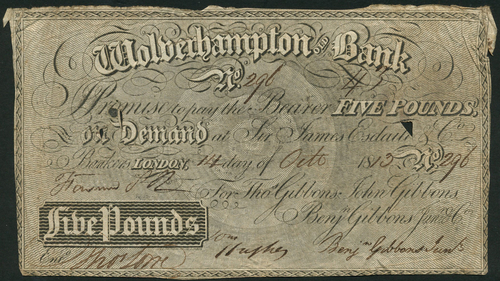 Wolverhampton Bank
No. 296
I Promise to pay the Bearer FIVE POUNDS,
on Demand at Sir James Esdaile & Co
Bankers LONDON, 14 day of Octr 1813 No 296
For Thos. Gibbons John Gibbons
Benjn Gibbons Junr & Co
Five Pounds
Entd Thos
Hughes
Benjn Gibbons Junr